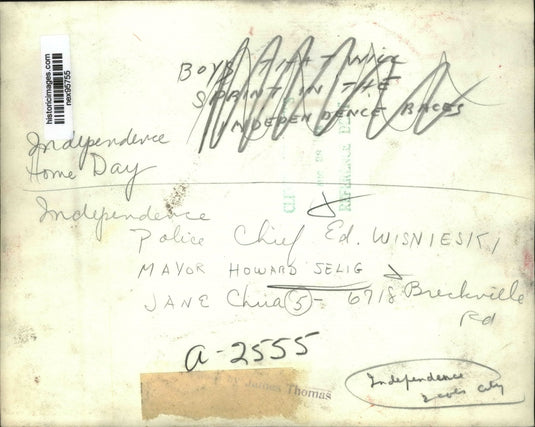 historicimages.com
nex95755
BOYS THAT WILL
SPRINT IN THE
INDEPENDENCE RACES
Independence
Home Day
Independence
Police Chief Ed. WISNIESKI
MAYOR HOWARD SELIG
JANE Chira (5) - 6718 Breckville
Rd
a-2555
James Thomas
Independence
city